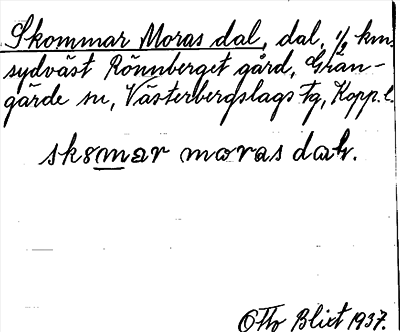 Skommar Moras dal, dal, 1/2 km.
sydväst Rönnberget gård, Gran-
gärde sn, Västerbergslags fg, Kopp. l.
moras
Otto Blixt 1937.